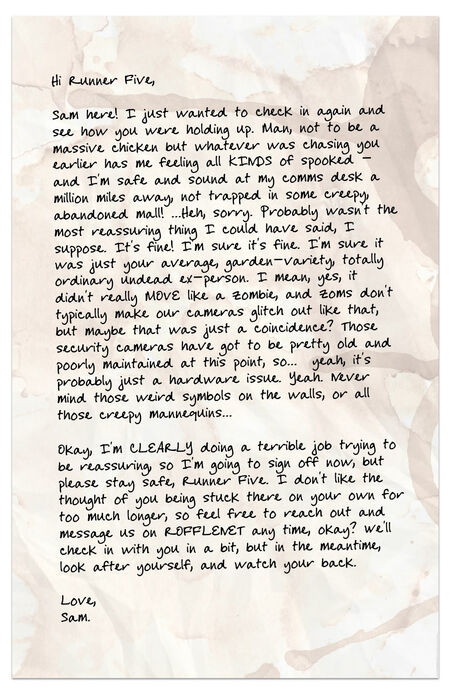 Hi Runner Five,
Sam here! I just wanted to check in again and
see how you were holding up. Man, not to be a
massive chicken but whatever was chasing you
earlier has me feeling all KINDS of spooked -
and I'm safe and sound at my comms desk a
million miles away, not trapped in some creepy,
abandoned mall! ...Heh, sorry. Probably wasn't the
most reassuring thing I could have said, I
suppose. It's fine! I'm sure it's fine. I'm sure it
was just your average, garden-variety, totally
ordinary undead ex-person. I mean, yes, it
didn't really MOVE like a zombie, and zoms don't
typically make our cameras glitch out like that,
but maybe that was just a coincidence? Those
security cameras have got to be pretty old and
poorly maintained at this point, so... yeah, it's
probably just a hardware issue. Yeah. Never
mind those weird symbols on the walls, or all
those creepy mannequins...
Okay, I'm CLEARLY doing a terrible job trying to
be reassuring, so I'm going to sign off now, but
please stay safe, Runner Five. I don't like the
thought of you being stuck there on your own for
too much longer, so feel free to reach out and
message us on ROFFLENET any time, okay? We'll
check in with you in a bit, but in the meantime,
look after yourself, and watch your back.
Love,
Sam.